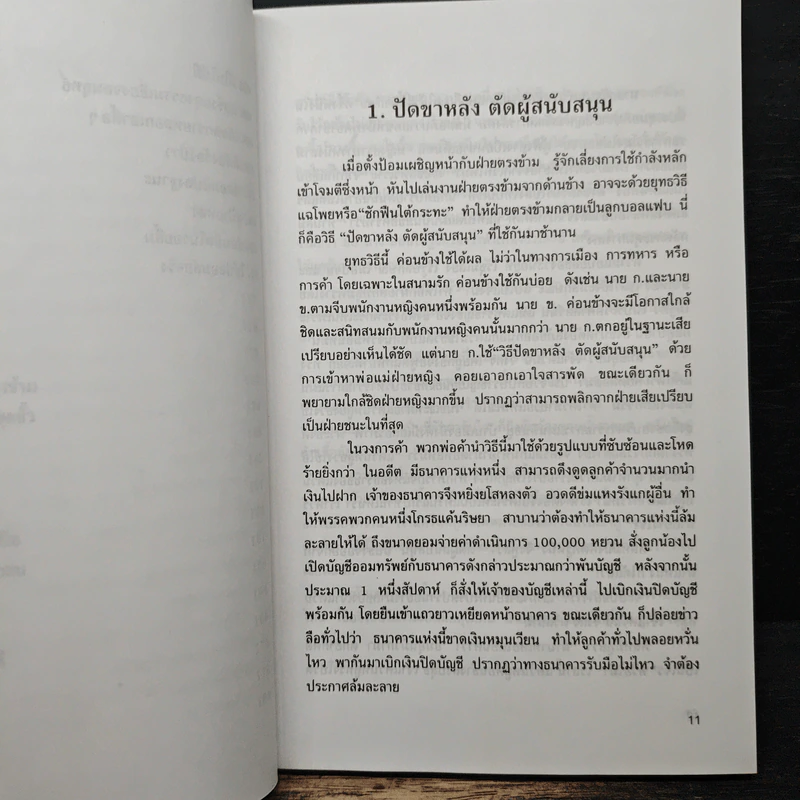 1. ปัดขาหลัง ตัดผู้สนับสนุน
เมื่อตั้งป้อมเผชิญหน้ากับฝ่ายตรงข้าม รู้จักเลี่ยงการใช้กำลังหลัก
เข้าโจมตีซึ่งหน้า หันไปเล่นงานฝ่ายตรงข้ามจากด้านข้าง อาจจะด้วยยุทธวิธี
แฉโพยหรือ“ชักฟืนใต้กระทะ” ทำให้ฝ่ายตรงข้ามกลายเป็นลูกบอลแฟบ นี่
ก็คือวิธี “ปัดขาหลัง ตัดผู้สนับสนุน” ที่ใช้กันมาช้านาน
ยุทธวิธีนี้ ค่อนข้างใช้ได้ผล ไม่ว่าในทางการเมือง การทหาร หรือ
การค้า โดยเฉพาะในสนามรัก ค่อนข้างใช้กันบ่อย ดังเช่น นาย ก.และนาย
ข.ตามจีบพนักงานหญิงคนหนึ่งพร้อมกัน นาย ข. ค่อนข้างจะมีโอกาสใกล้
ชิดและสนิทสนมกับพนักงานหญิงคนนั้นมากกว่า นาย ก.ตกอยู่ในฐานะเสีย
เปรียบอย่างเห็นได้ชัด แต่นาย ก.ใช้“วิธีปัดขาหลัง ตัดผู้สนับสนุน” ด้วย
การเข้าหาพ่อแม่ฝ่ายหญิง คอยเอาอกเอาใจสารพัด ขณะเดียวกัน ก็
พยายามใกล้ชิดฝ่ายหญิงมากขึ้น ปรากฏว่าสามารถพลิกจากฝ่ายเสียเปรียบ
เป็นฝ่ายชนะในที่สุด
ในวงการค้า พวกพ่อค้านำวิธีนี้มาใช้ด้วยรูปแบบที่ซับซ้อนและโหด
ร้ายยิ่งกว่า ในอดีต มีธนาคารแห่งหนึ่ง สามารถดึงดูดลูกค้าจำนวนมากนำ
เงินไปฝาก เจ้าของธนาคารจึงหยิ่งยโสหลงตัว อวดดีข่มแหงรังแกผู้อื่น ทำ
ให้พรรคพวกคนหนึ่งโกรธแค้นริษยา สาบานว่าต้องทำให้ธนาคารแห่งนี้ล้ม
ละลายให้ได้ ถึงขนาดยอมจ่ายค่าดำเนินการ 100,000 หยวน สั่งลูกน้องไป
เปิดบัญชีออมทรัพย์กับธนาคารดังกล่าวประมาณกว่าพันบัญชี หลังจากนั้น
ประมาณ 1 หนึ่งสัปดาห์ ก็สั่งให้เจ้าของบัญชีเหล่านี้ ไปเบิกเงินปิดบัญชี
พร้อมกัน โดยยืนเข้าแถวยาวเหยียดหน้าธนาคาร ขณะเดียวกัน ก็ปล่อยข่าว
ลือทั่วไปว่า ธนาคารแห่งนี้ขาดเงินหมุนเวียน ทำให้ลูกค้าทั่วไปพลอยหวั่น
ไหว พากันมาเบิกเงินปิดบัญชี ปรากฏว่าทางธนาคารรับมือไม่ไหว จำต้อง
ประกาศล้มละลาย
11